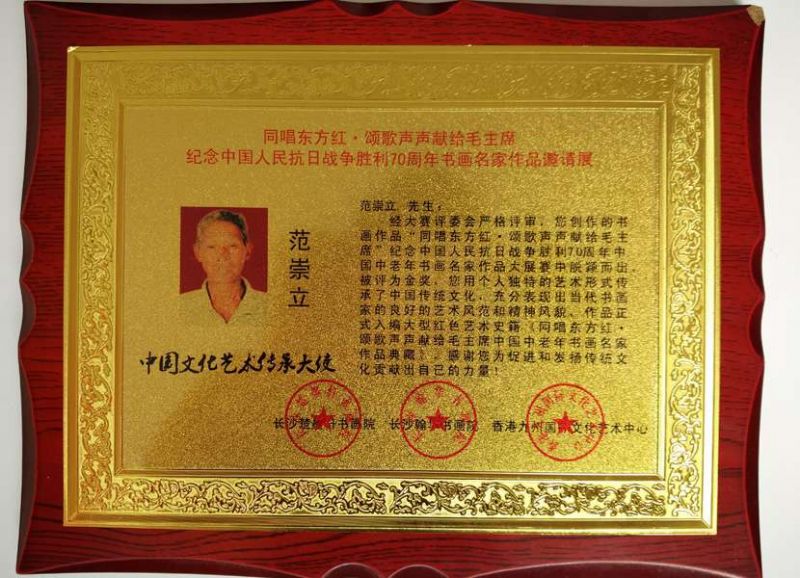 同唱东方红·颂歌声声献给毛主席
纪念中国人民抗日战争胜利70周年书画名家作品邀请展
范崇立
中国文化艺术传承大使
范崇立 先生:
经大赛评委会严格评审,您创作的书
画作品“同唱东方红·颂歌声声献给毛主
席”纪念中国人民抗日战争胜利70周年中
国中老年书画名家作品大展赛中脱颖而出,
被评为金奖。您用个人独特的艺术形式传
承了中国传统文化,充分表现出当代书画
家的良好的艺术风范和精神风貌。作品正
式入编大型红色艺术史籍《同唱东方红·
颂歌声声献给毛主席中国中老年书画名家
作品典藏》。感谢您为促进和发扬传统文
化贡献出自己的力量!
长沙楚 书画院 长沙翰 书画院 香港九州国际文化艺术中心